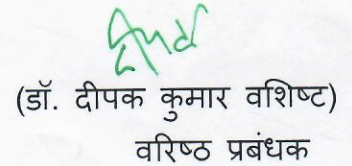 (डॉ. दीपक कुमार वशिष्ट)
वरिष्ठ प्रबंधक